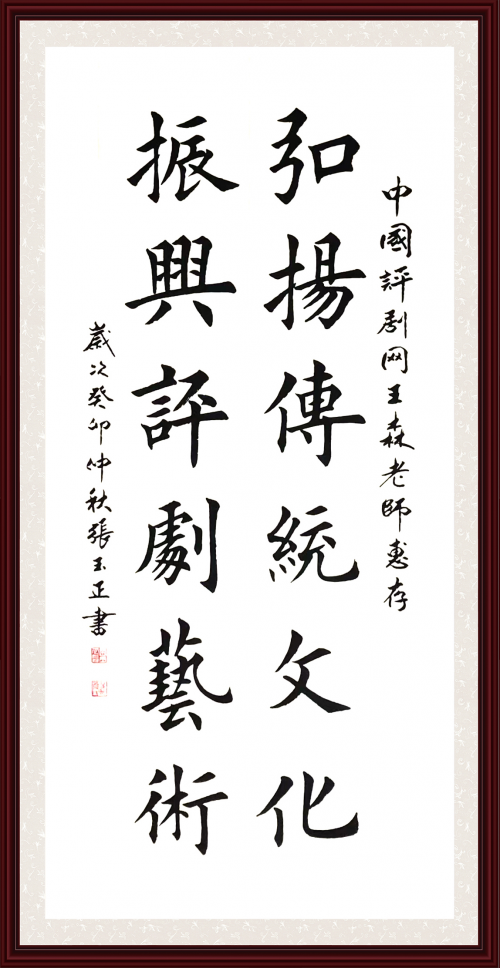 中國評剧网王森老師惠存
弘揚傳統文化
振興評劇藝術
歲次癸卯仲秋張玉正書